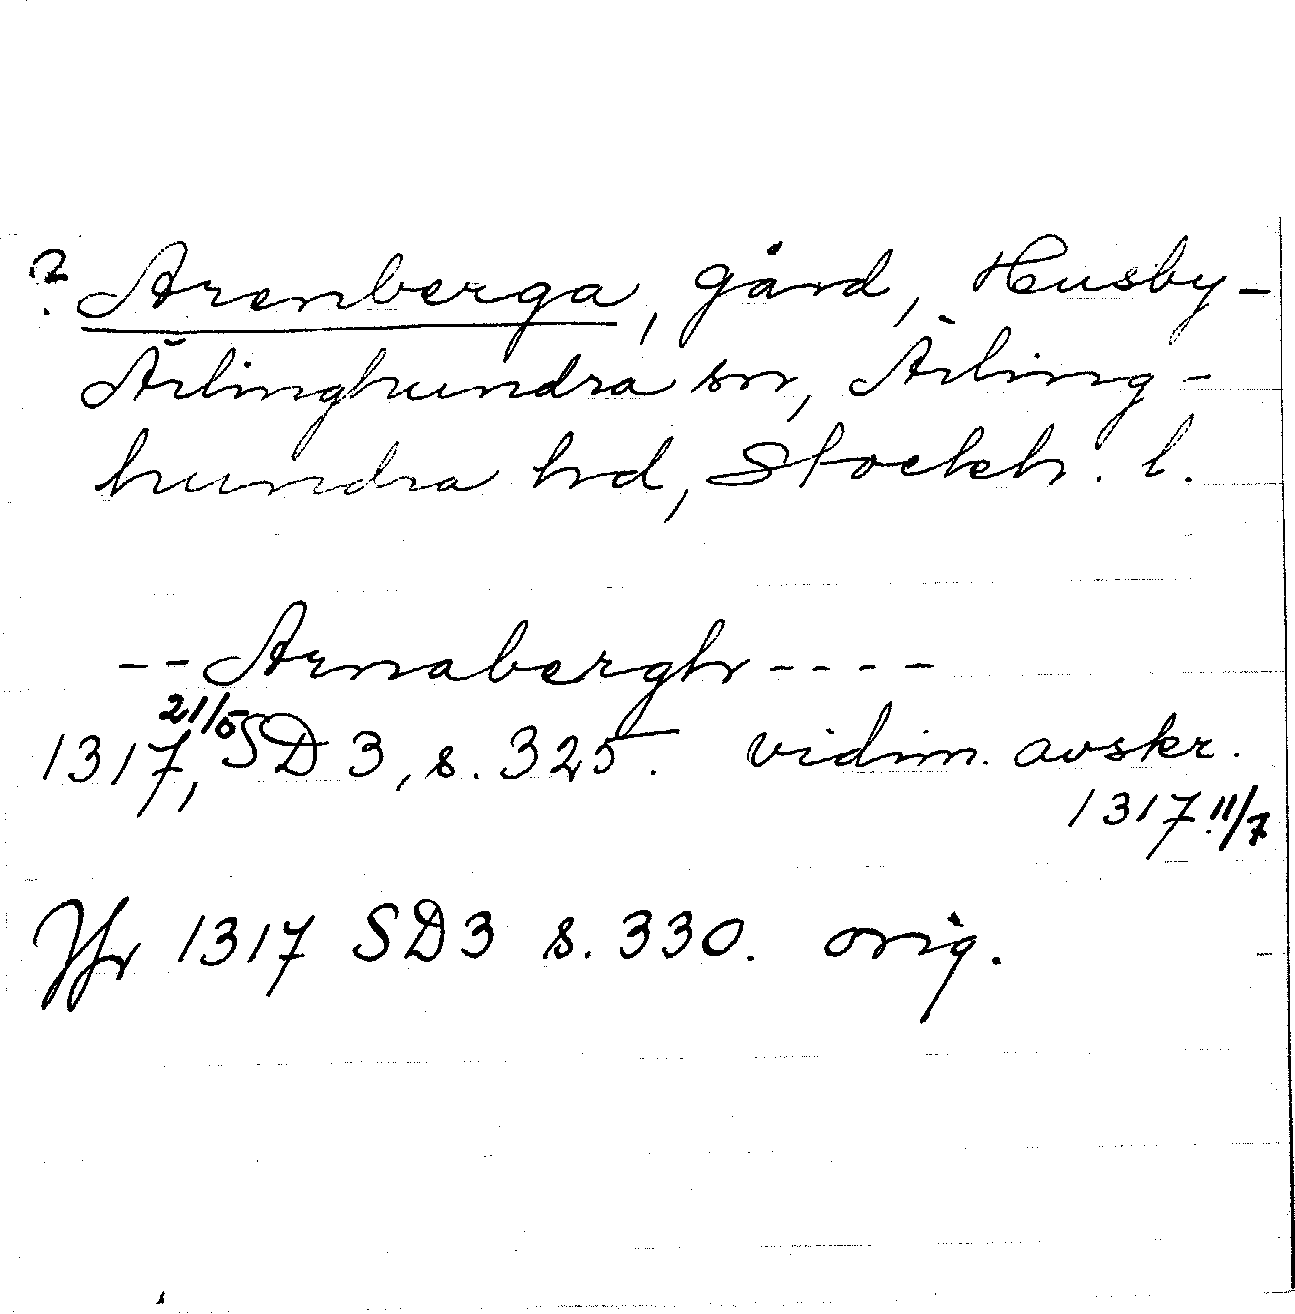 ? Arenberga, gård, Husby-
Ärlinghundra sn, Ärling-
hundra hd, Stockh. l.
-- Arnabergh ----
1317 21/5, SD 3, s. 325. vidim. avskr.
1317 11/7
Jfr 1317 SD3 s. 330. orig.